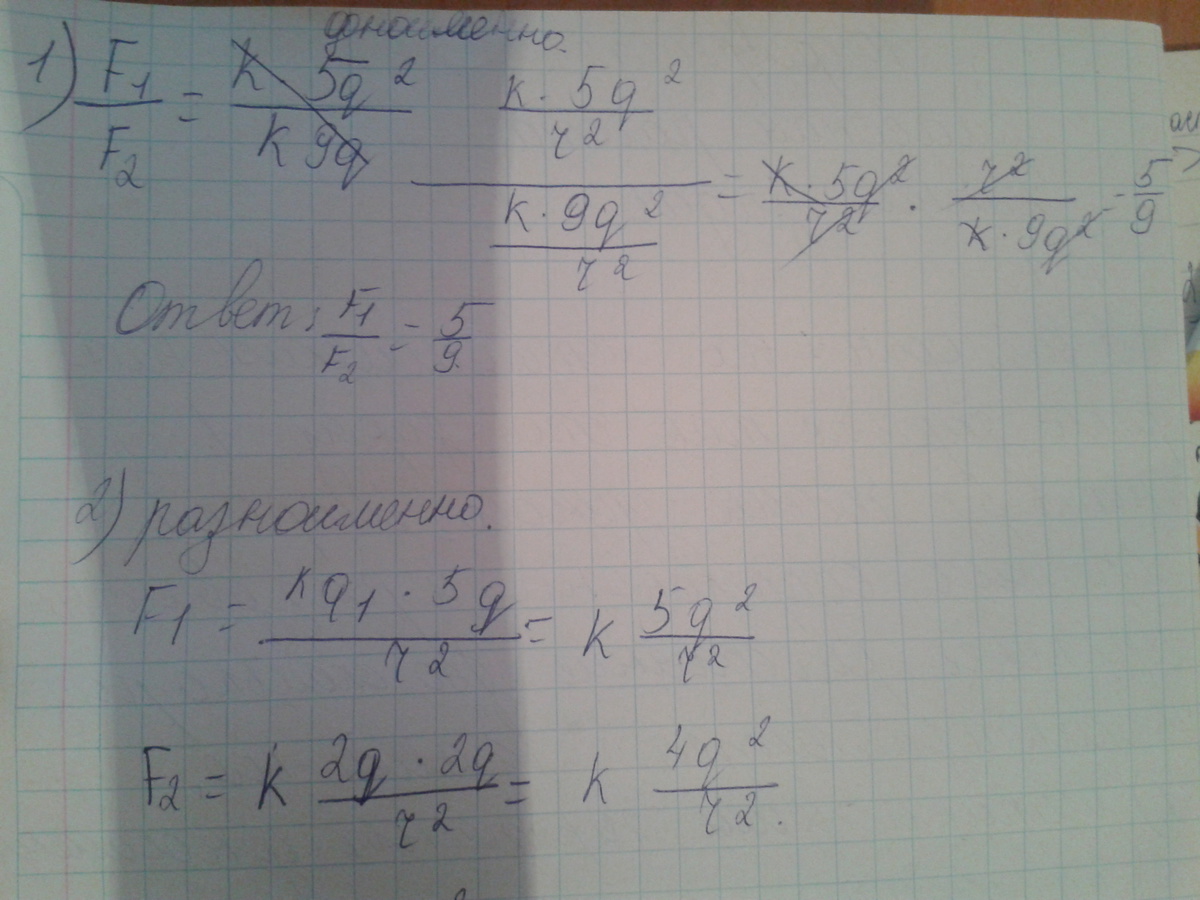 одноименно.
1) F₁/F₂ = k 5q²/k 9q (k · 5q²/r²)/(k · 9q²/r²) = k · 5q²/r² · r²/k · 9q² = 5/9
Ответ: F₁/F₂ = 5/9
2) разноименно.
F₁ = kq₁ · 5q/r² = k 5q²/r²
F₂ = k 2q · 2q/r² = k 4q²/r².